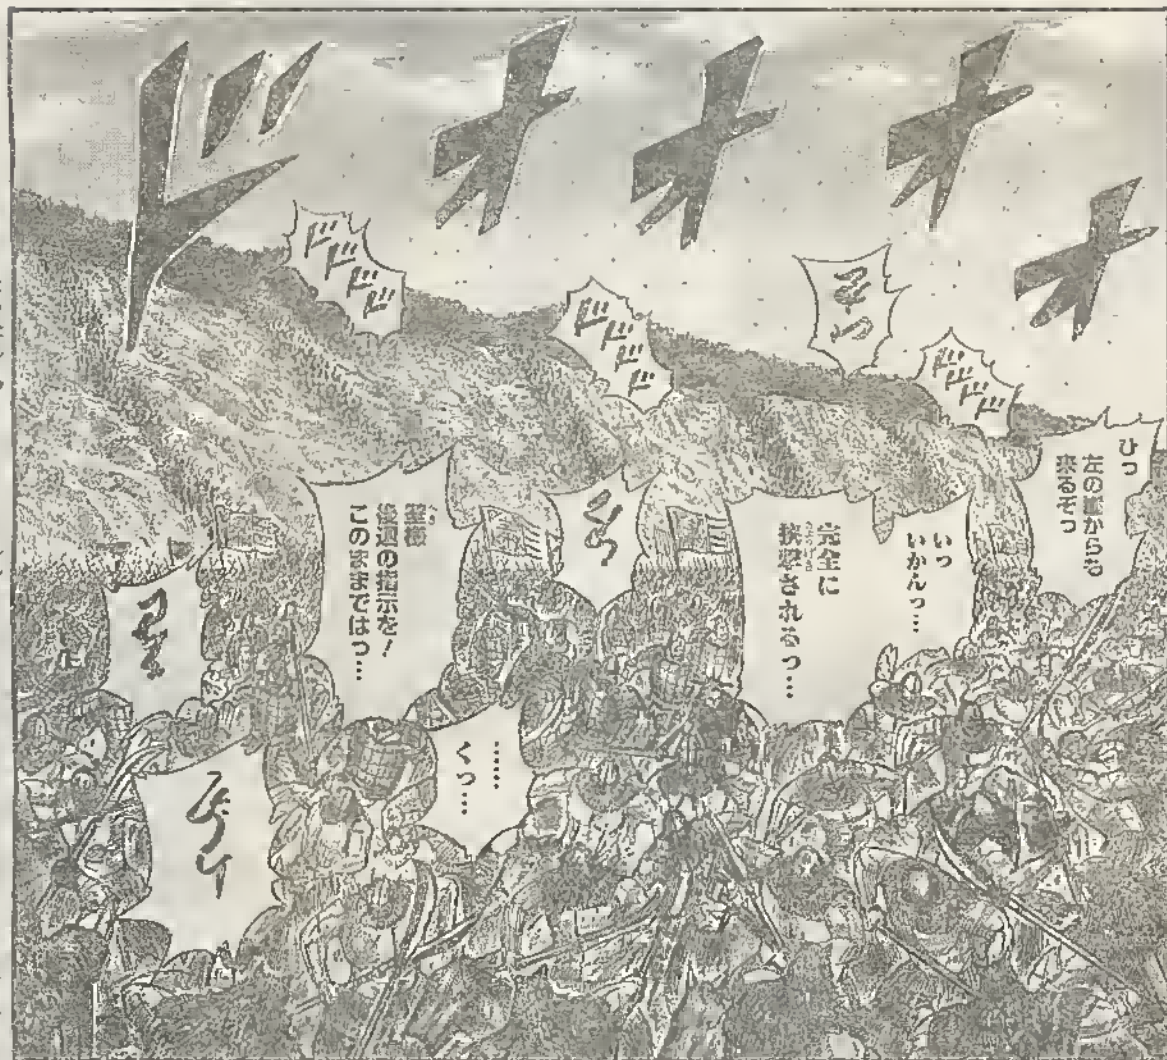 ドオオオオ
ドドドド
ドドドド
ドドドド
ひっ
左の崖からも
来るぞっ
いっ
いかんっ…
完全に
挟撃されるっ…
壁様
後退の指示を!
このままではっ…
……
くっ…